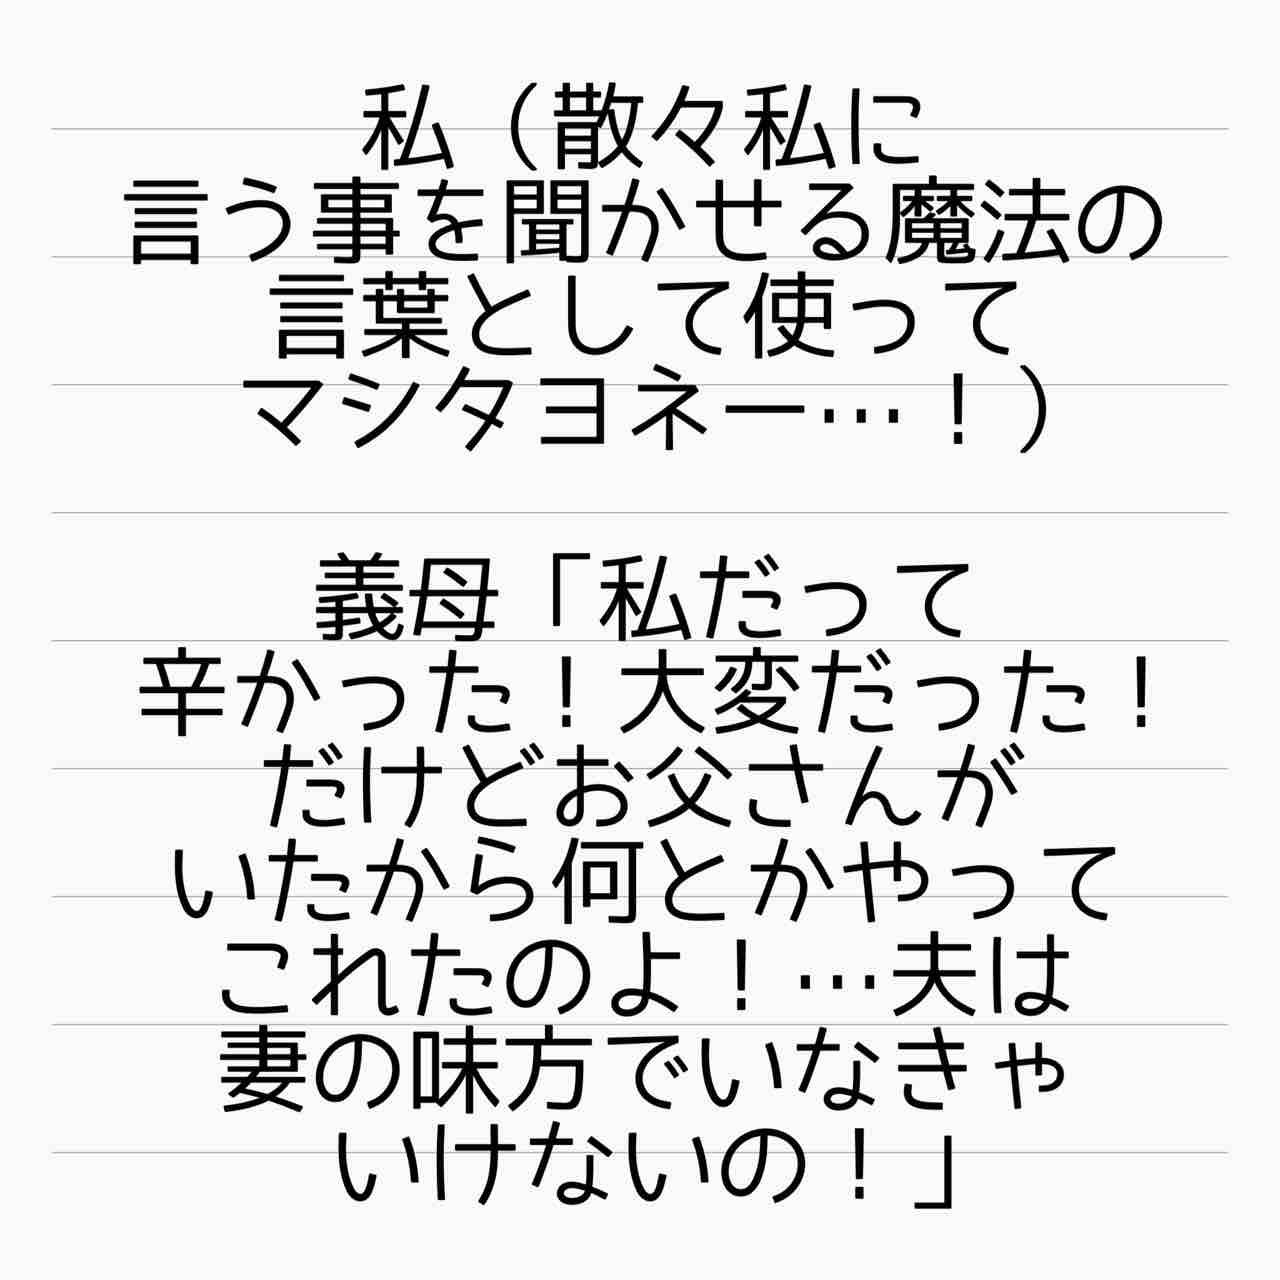 私（散々私に
言う事を聞かせる魔法の
言葉として使って
マシタヨネー…！）
義母「私だって
辛かった！大変だった！
だけどお父さんが
いたから何とかやって
これたのよ！…夫は
妻の味方でいなきゃ
いけないの！」